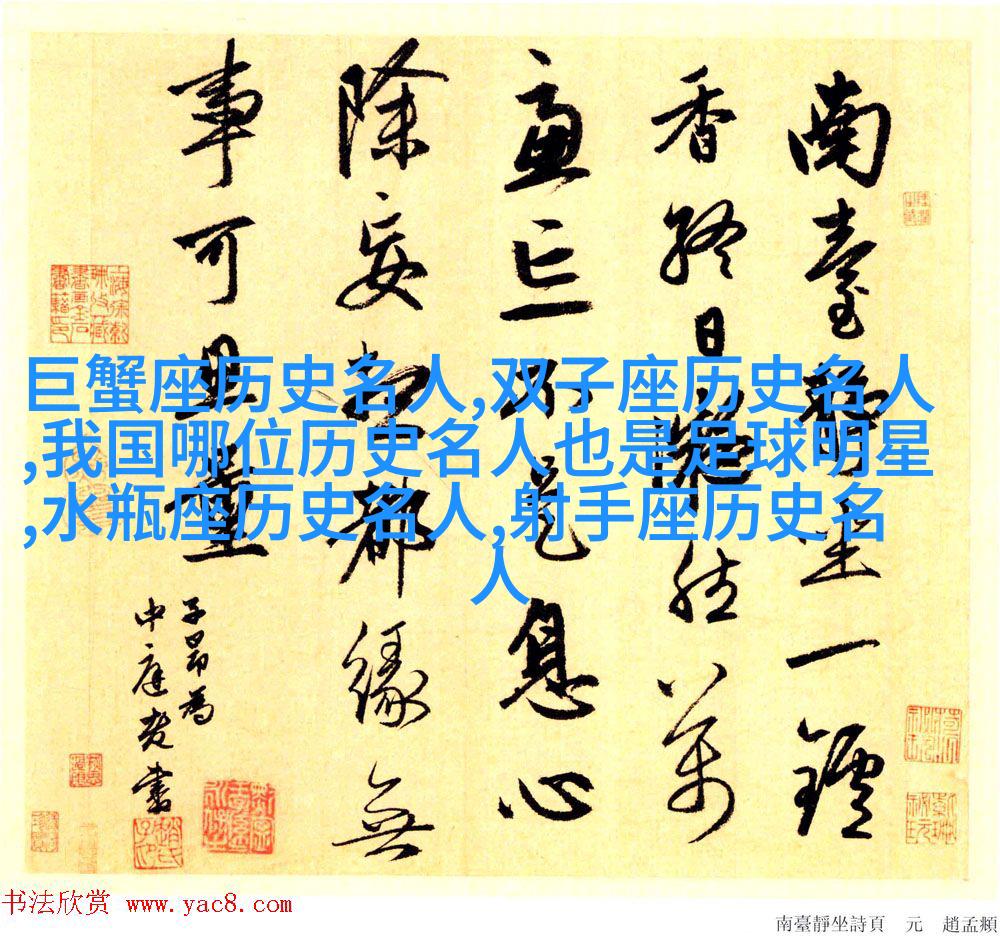 南臺靜坐一鑪
香終日凝然萬
慮亡不是息心
除妄想都緣無
事可思量
子昂為
中庭老書
巨蟹座历史名人,双子座历史名人
,我国哪位历史名人也是足球明星
,水瓶座历史名人,射手座历史名
人
书法欣赏 www.yac8.com
南臺靜坐詩頁 元 趙孟頫